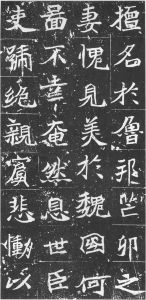 擅名於魯邦芒卯之
妻愧見美於魏國何
啚不幸奄然息世臣
吏號絕親賓悲慟以